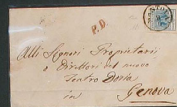 P.D.
Alli Signori Proprietari
e Direttori del nuovo
Teatro Doria
in Genova